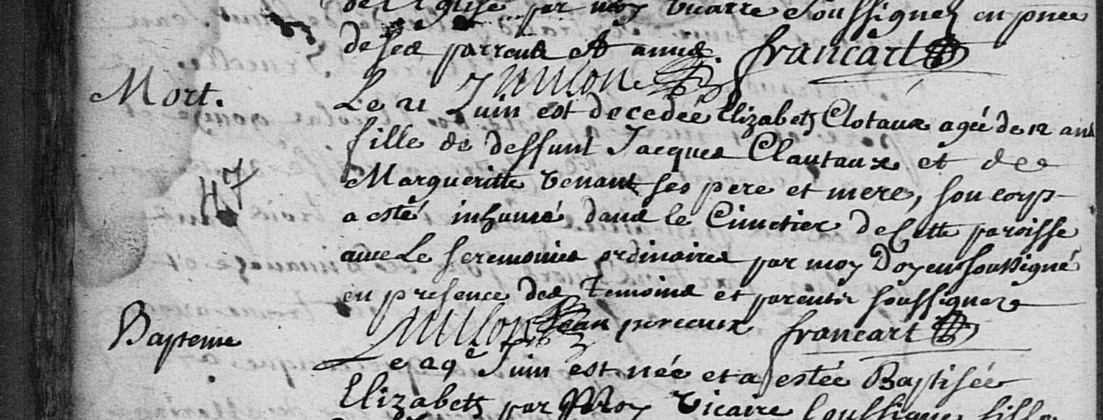 de l'Eglise par moy vicaire soussignez en pnce
de ses parrens et amis francart
Mort.
Le 21 Juin est decedée Elizabeth Clotaux agée de 12 ans
fille de deffunt Jacques Clautaux et de
Margueritte venant ses pere et mere, son corp
47
a esté inhumé dans le Cimetier de cette paroisse
avec le seremonies ordinaires par moy Doyen soussigné
en presence des temoins et parents soussignez
Jean perceux francart
Bapteme
Le 29e Juin est née et a estée Baptisée
Elizabeth par Moy vicaire soussigné fille